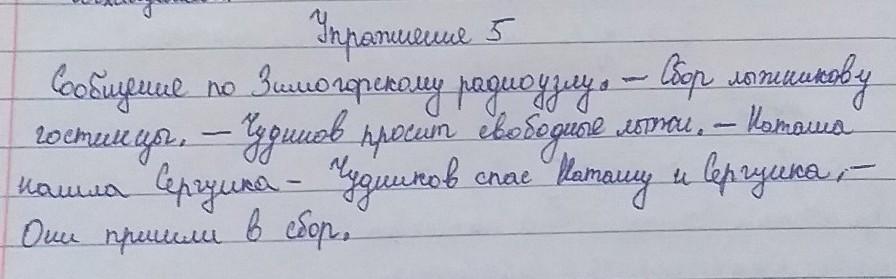 Упражнение 5
Сообщение по Зимогорскому радиоузлу. – Сбор лыжников у
гостиницы. – Чудинов просит свободные лыжи. – Наташа
нашла Сергунка – Чудинов спас Наташу и Сергунка. –
Они пришли в сбор.